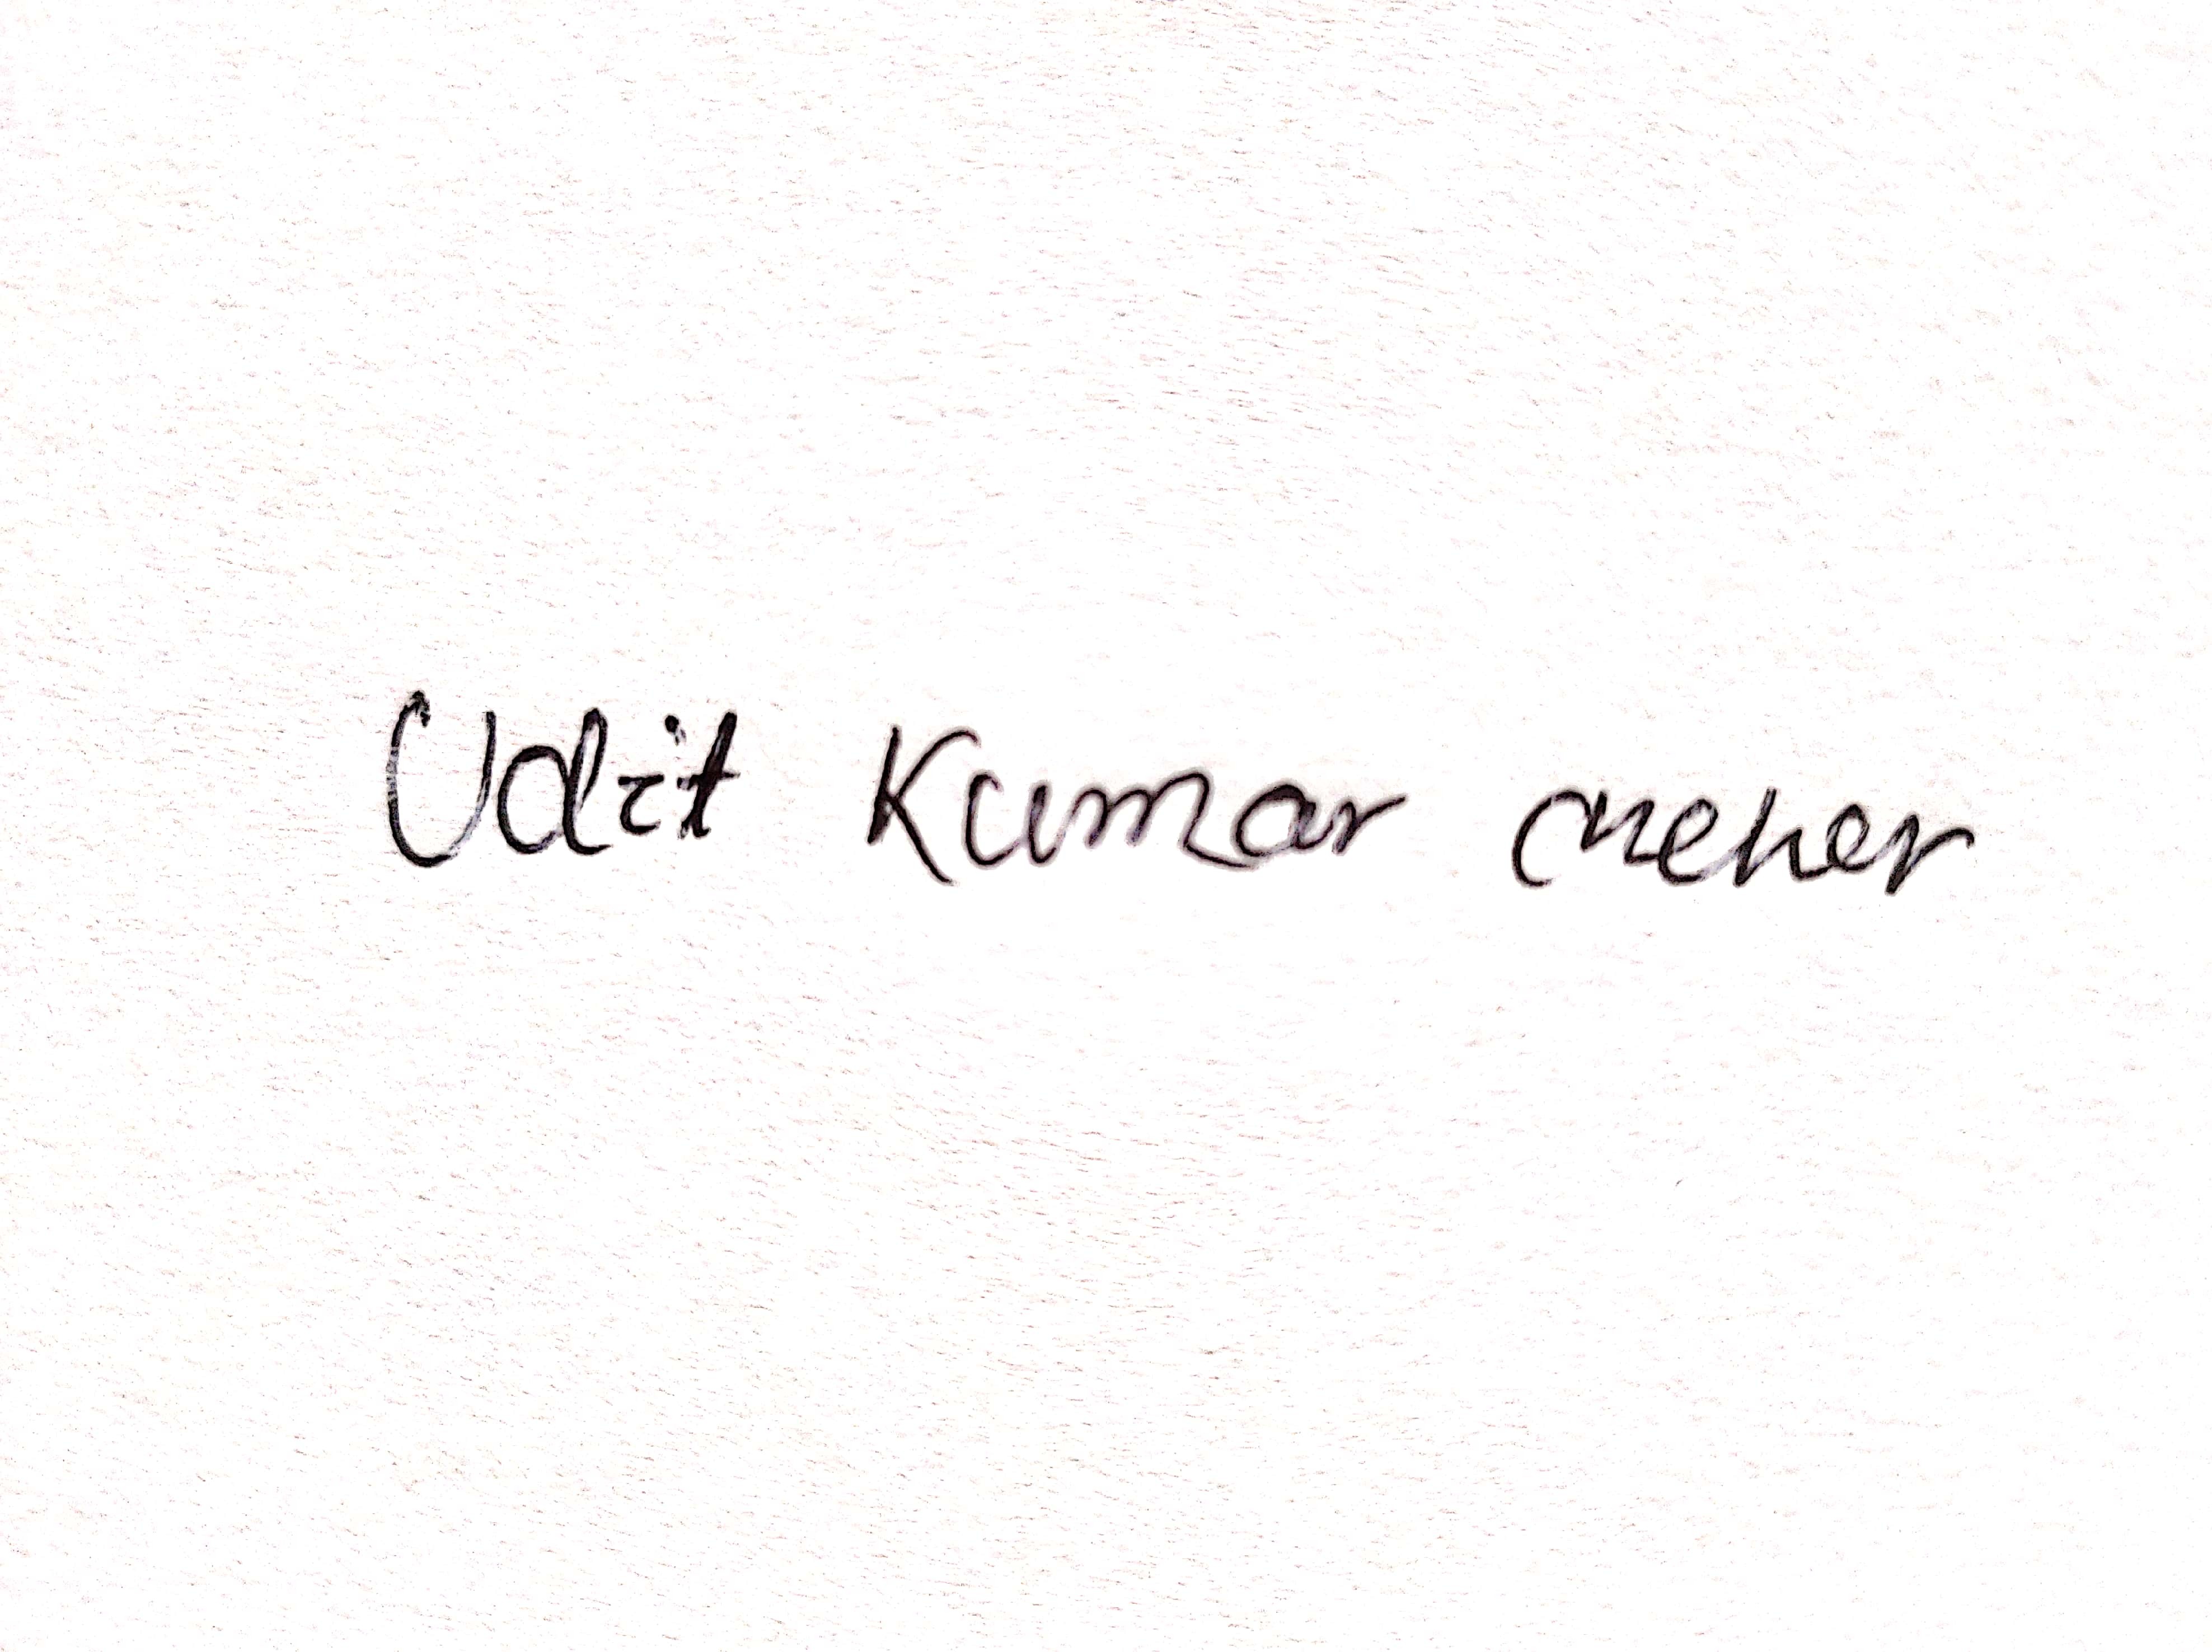 Udit Kumar meher